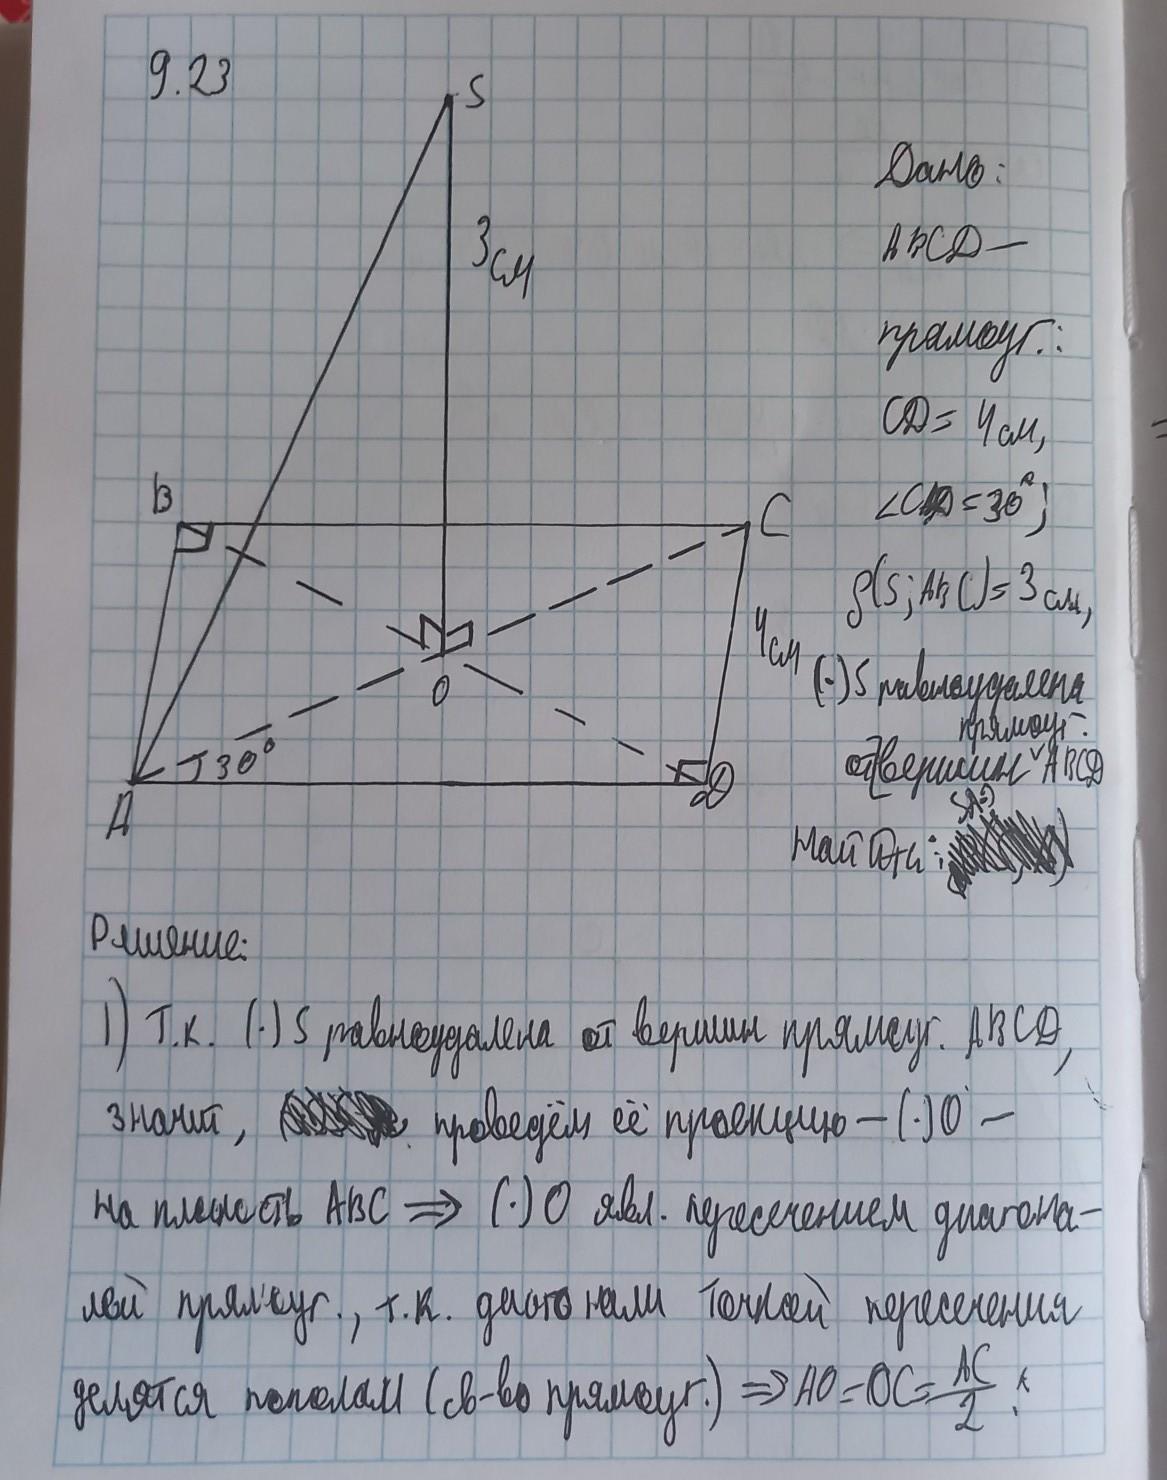 9.23
S
Дано:
3см
ABCD —
прямоуг.:
CD = 4см,
B
C
∠CAD = 30°;
ρ(S; ABC) = 3см,
4см
(·) S равноудалена
O
прямоуг.
от вершин ˅ ABCD
30°
A
D
SA-?
Найти:
Решение:
1) Т.к. (·) S равноудалена от вершин прямоуг. ABCD,
значит, проведём её проекцию — (·) O —
на плость ABC ⇒ (·) O явл. пересечением диагона-
лей прямоуг., т.к. диагонали точкой пересечения
делятся пополам (св-во прямоуг.) ⇒ AO = OC = AC/2 ;